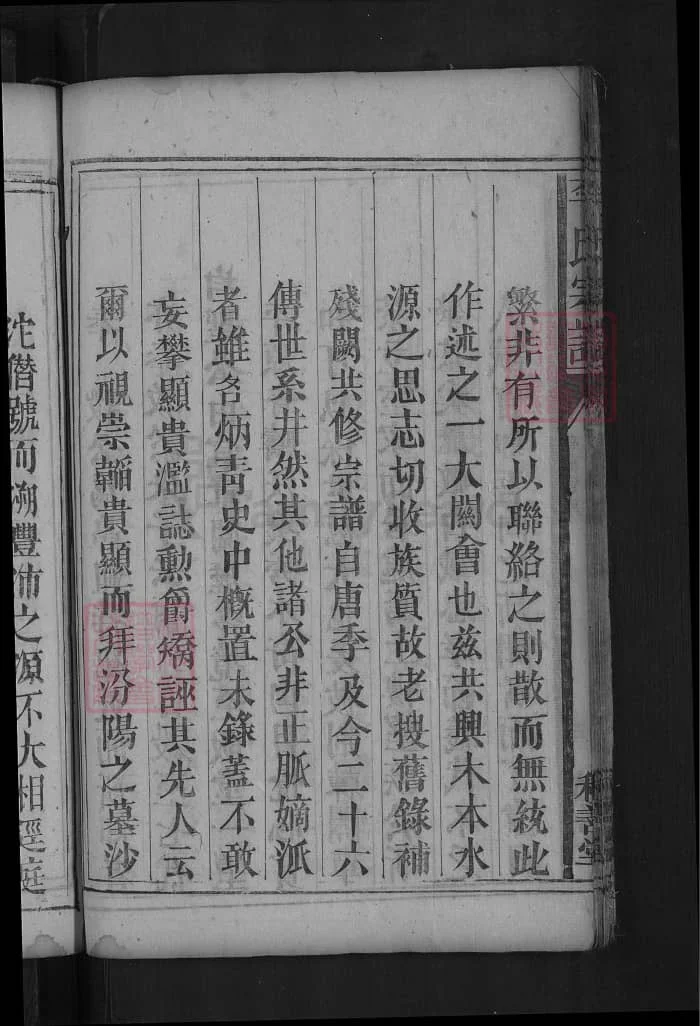 氏宗譜
繁非有所以聯絡之則散而無統此
作述之一大關會也茲共興木本水
源之思志切收族質故老搜舊錄補
殘闕共修宗譜自唐季及今二十六
傳世系井然其他諸公非正脈嫡派
者雖名炳靑史中槪置未錄蓋不敢
妄攀顯貴濫誌勲爵矯誣其先人云
爾以視崇韜貴顯而拜汾陽之墓沙
沱僭號而溯豐沛之源不大相逕庭